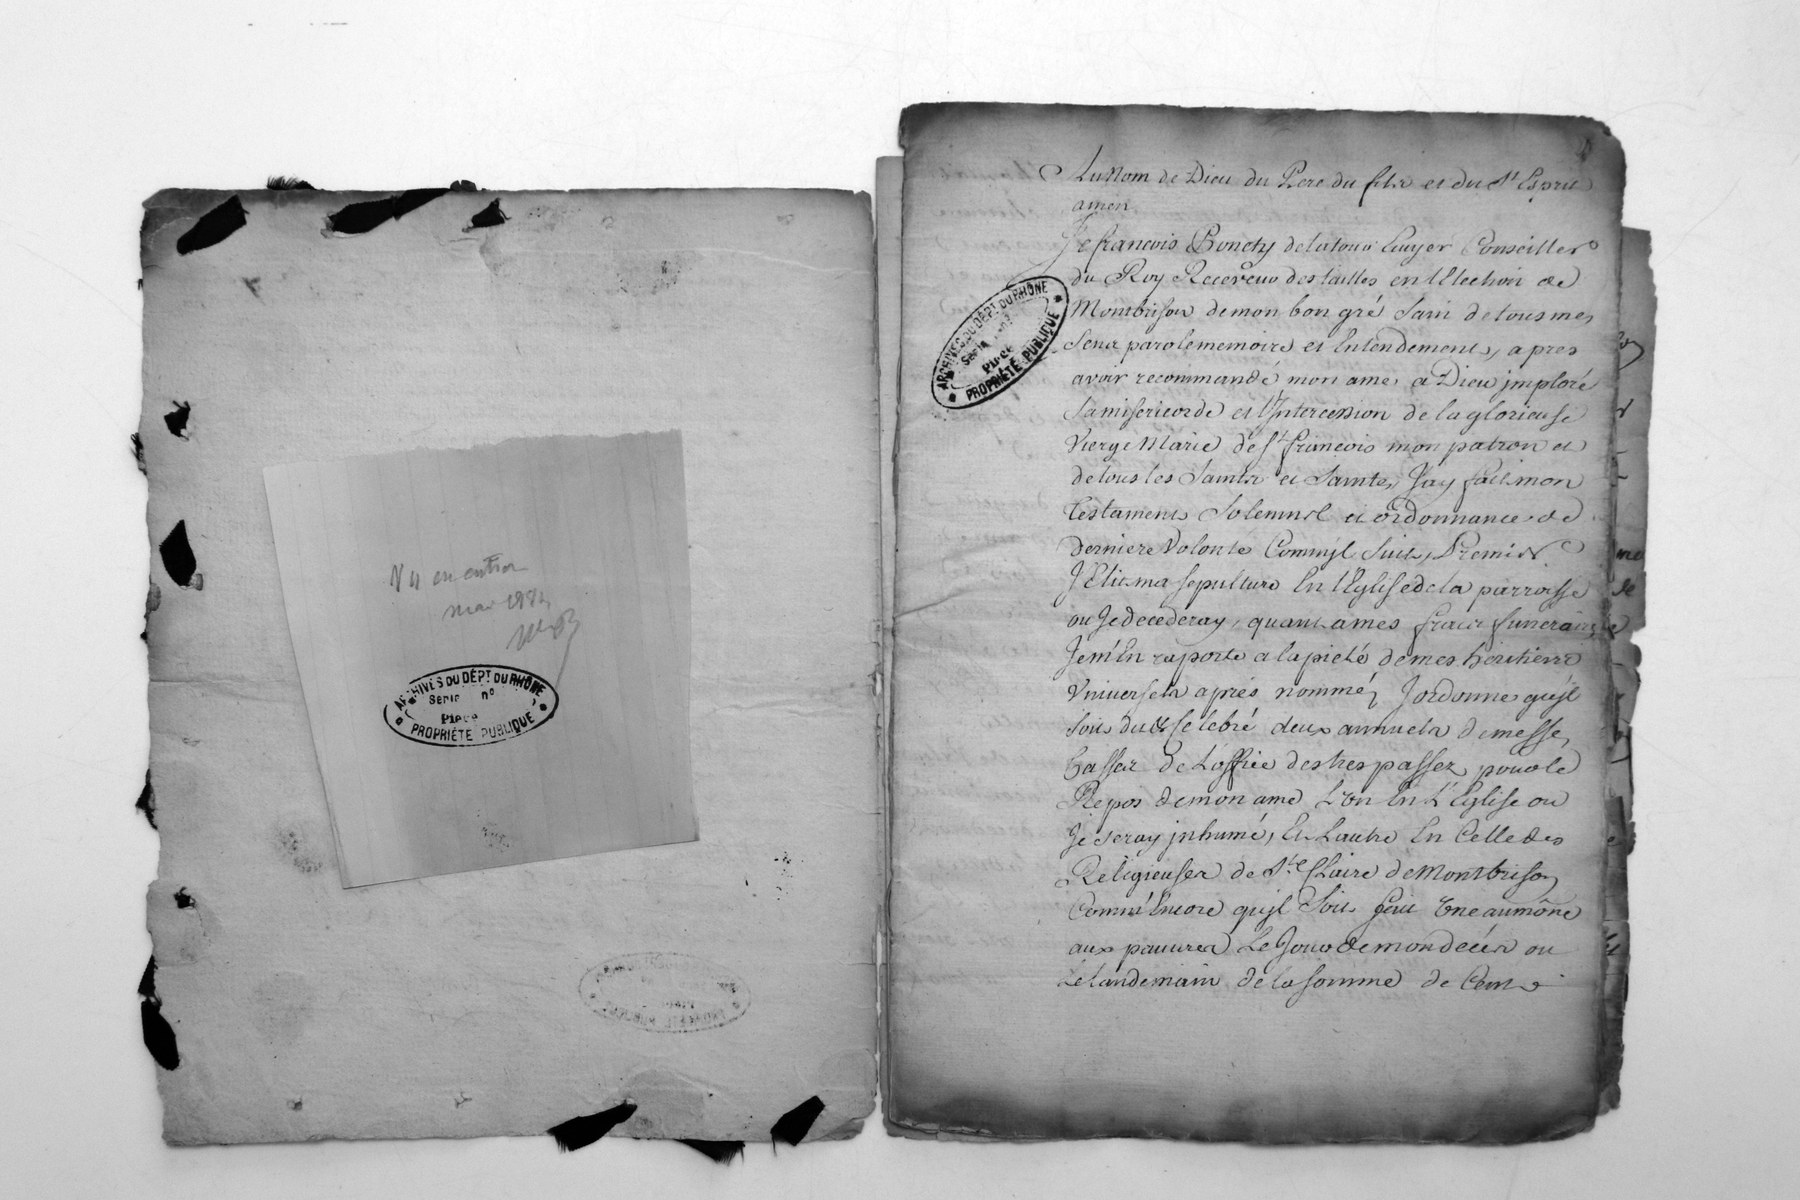 Vu en entier
mai 1984
ARCHIVES DU DÉPT DU RHÔNE
Série n°
Pièce
PROPRIÉTÉ PUBLIQUE
Au Nom de Dieu du Pere du fils et du St Esprit
amen
Je francois Ponchy delatour Ecuyer Conseiller
du Roy Receveur des tailles en l'Election de
Montbrison demon bon gré Sain detousmes
Sens parolememoire et Entendement, apres
avoir recommandé mon ame a Dieu jmploré
Samisericorde et l'Jntercession de laglorieuse
Vierge Marie de St francois mon patron et
detous les Saints et Saintes, Jay fait mon
testament Solemnel et ordonnance de
derniere Volonté Comm'jl Suit, Premier
J'Elis ma sepulture En l'Eglisedela parroisse
ou Jedecederay, quant ames frais funeraires
Jem'En raporte a lapieté demes heritiers
Vniversels aprés nommés, J'ordonne qu'jl
Soit dit & Celebré deux annuels demesses
basses de L'office destrespassez pourle
Repos demon ame L'un En L'Eglise ou
Je seray jnhumé, Et Lautre En Celledes
Religieuses de Ste Claire deMontbrison
Comm'Encore qu'jl Soit fait Une aumône
aux pauures Le Jour demondecés ou
Lelandemain de la somme de Cent
ARCHIVES DU DÉPT DU RHÔNE
Série n°
Pièce
PROPRIÉTÉ PUBLIQUE